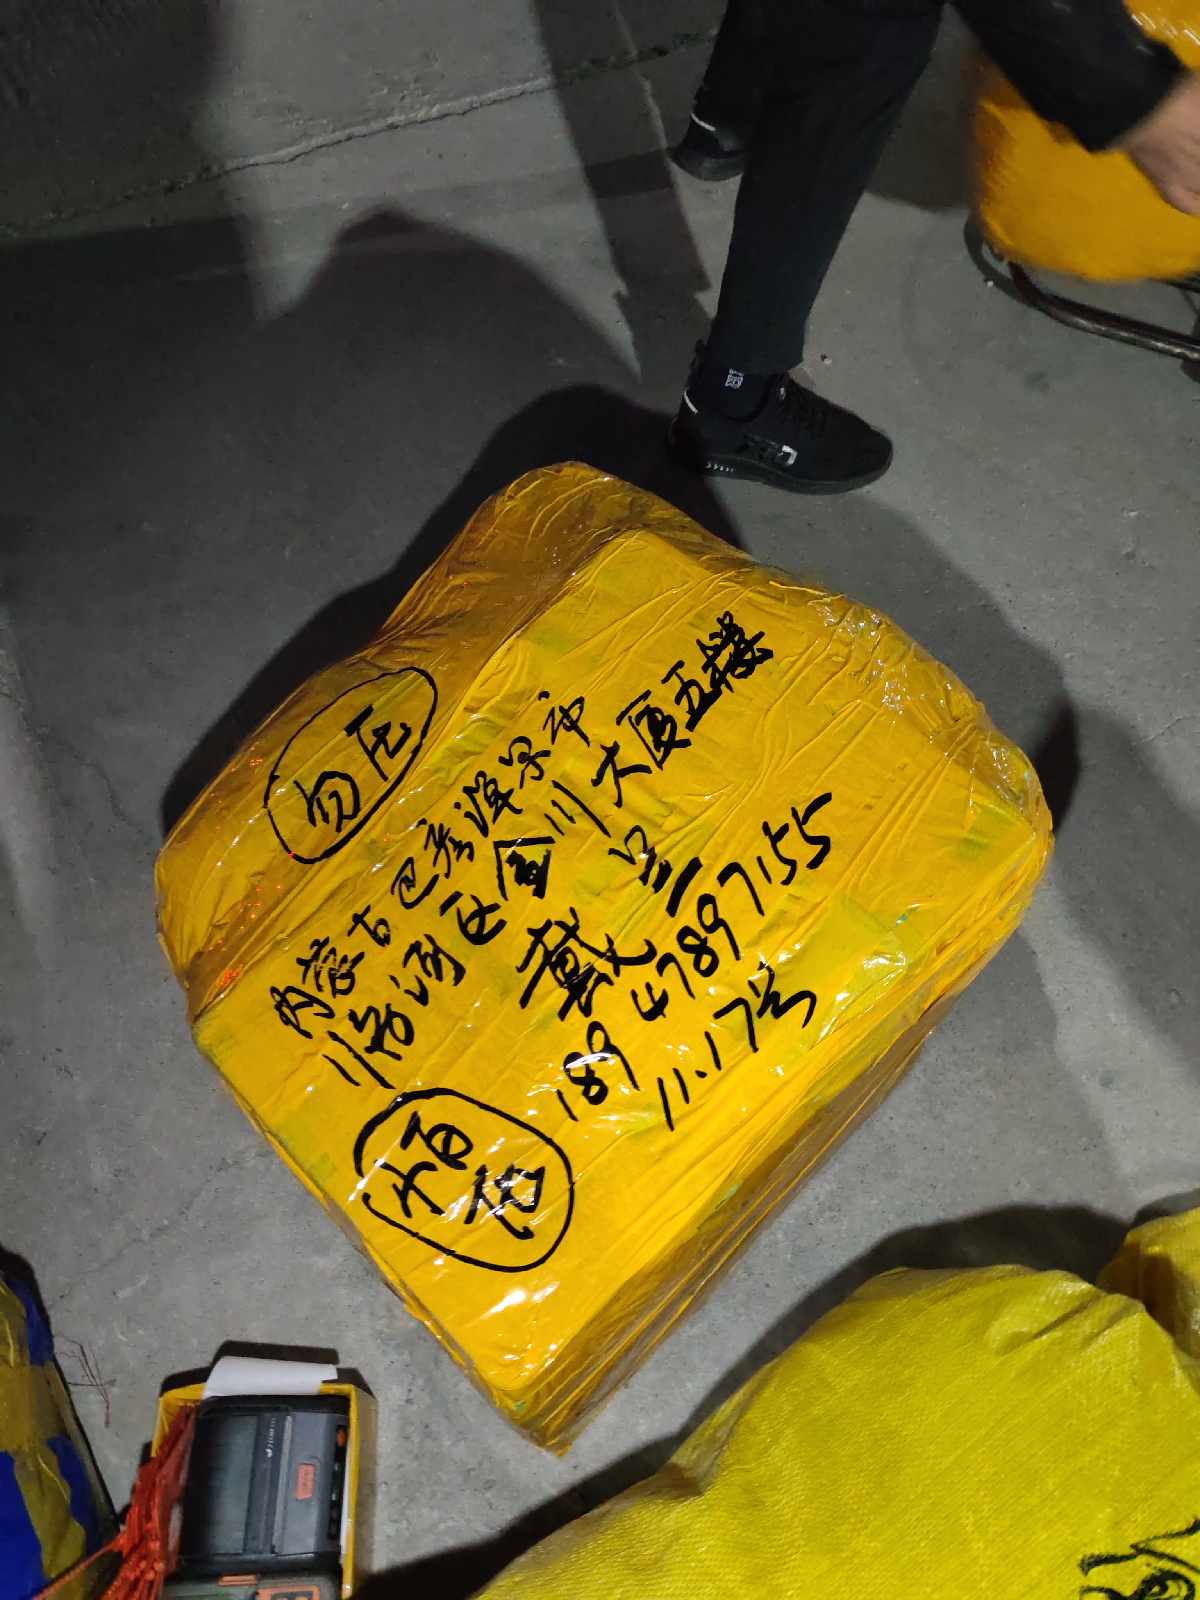 勿压
内蒙古巴彦淖尔市
临河区金川大厦五楼
戴
189 47897155
11.17号
百